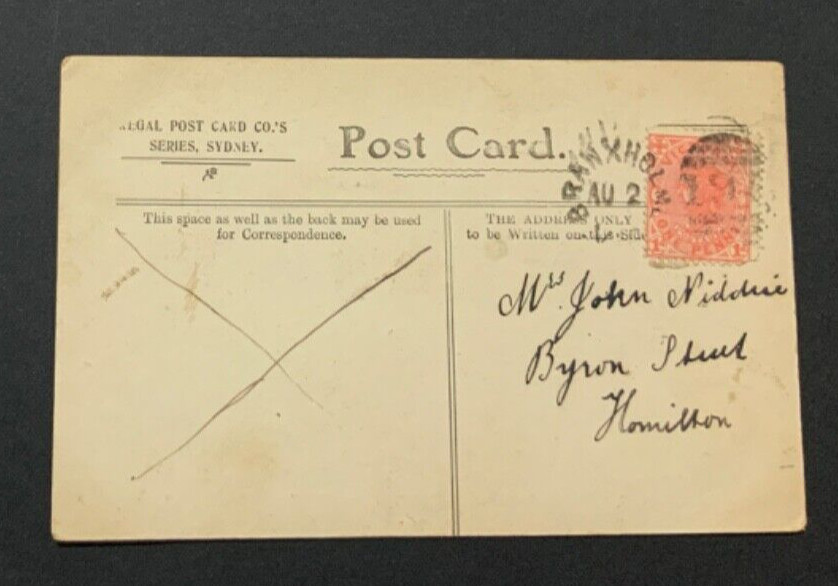 REGAL POST CARD CO.'S
SERIES, SYDNEY.
Post Card.
This space as well as the back may be used
for Correspondence.
THE ADDRESS ONLY
to be Written on this Side
BRANXHOLM
AU 2
ONE PENNY
Mrs John Niddrie
Byron Street
Hamilton